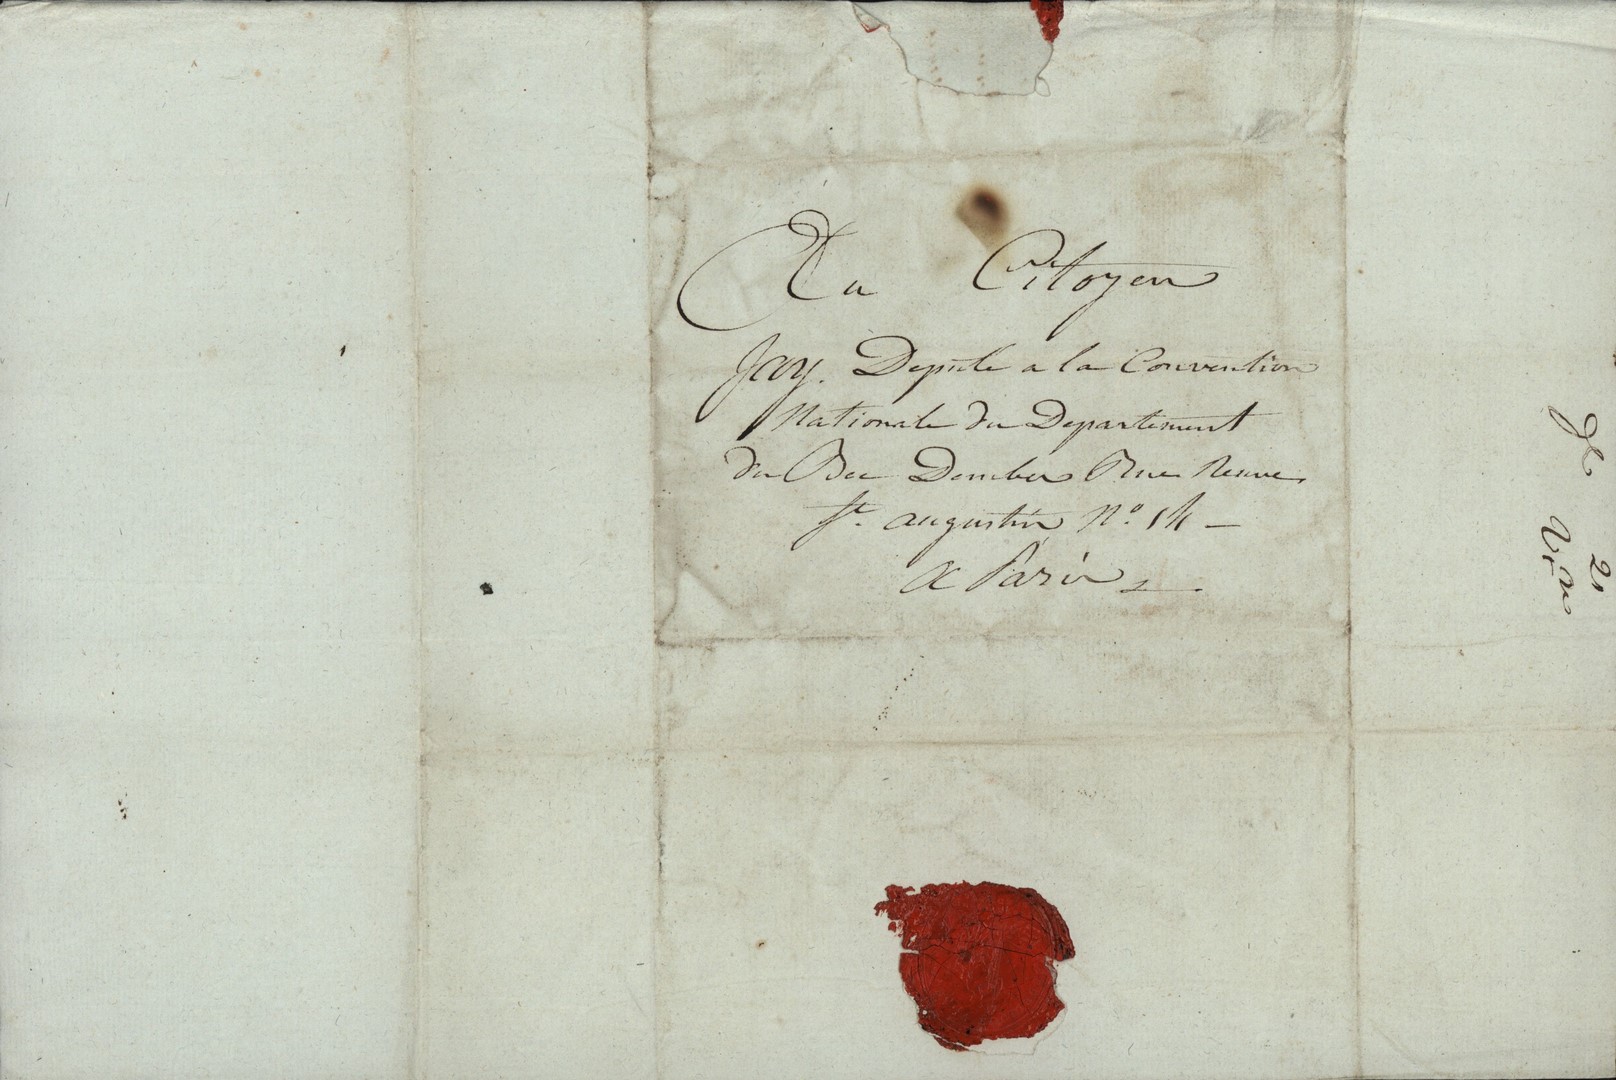 Au Citoyen
Jay. Deputé a la Convention
Nationale du Departement
du Bec Dembes Rue Neuve
St. augustin N.o 14 -
a Paris
21